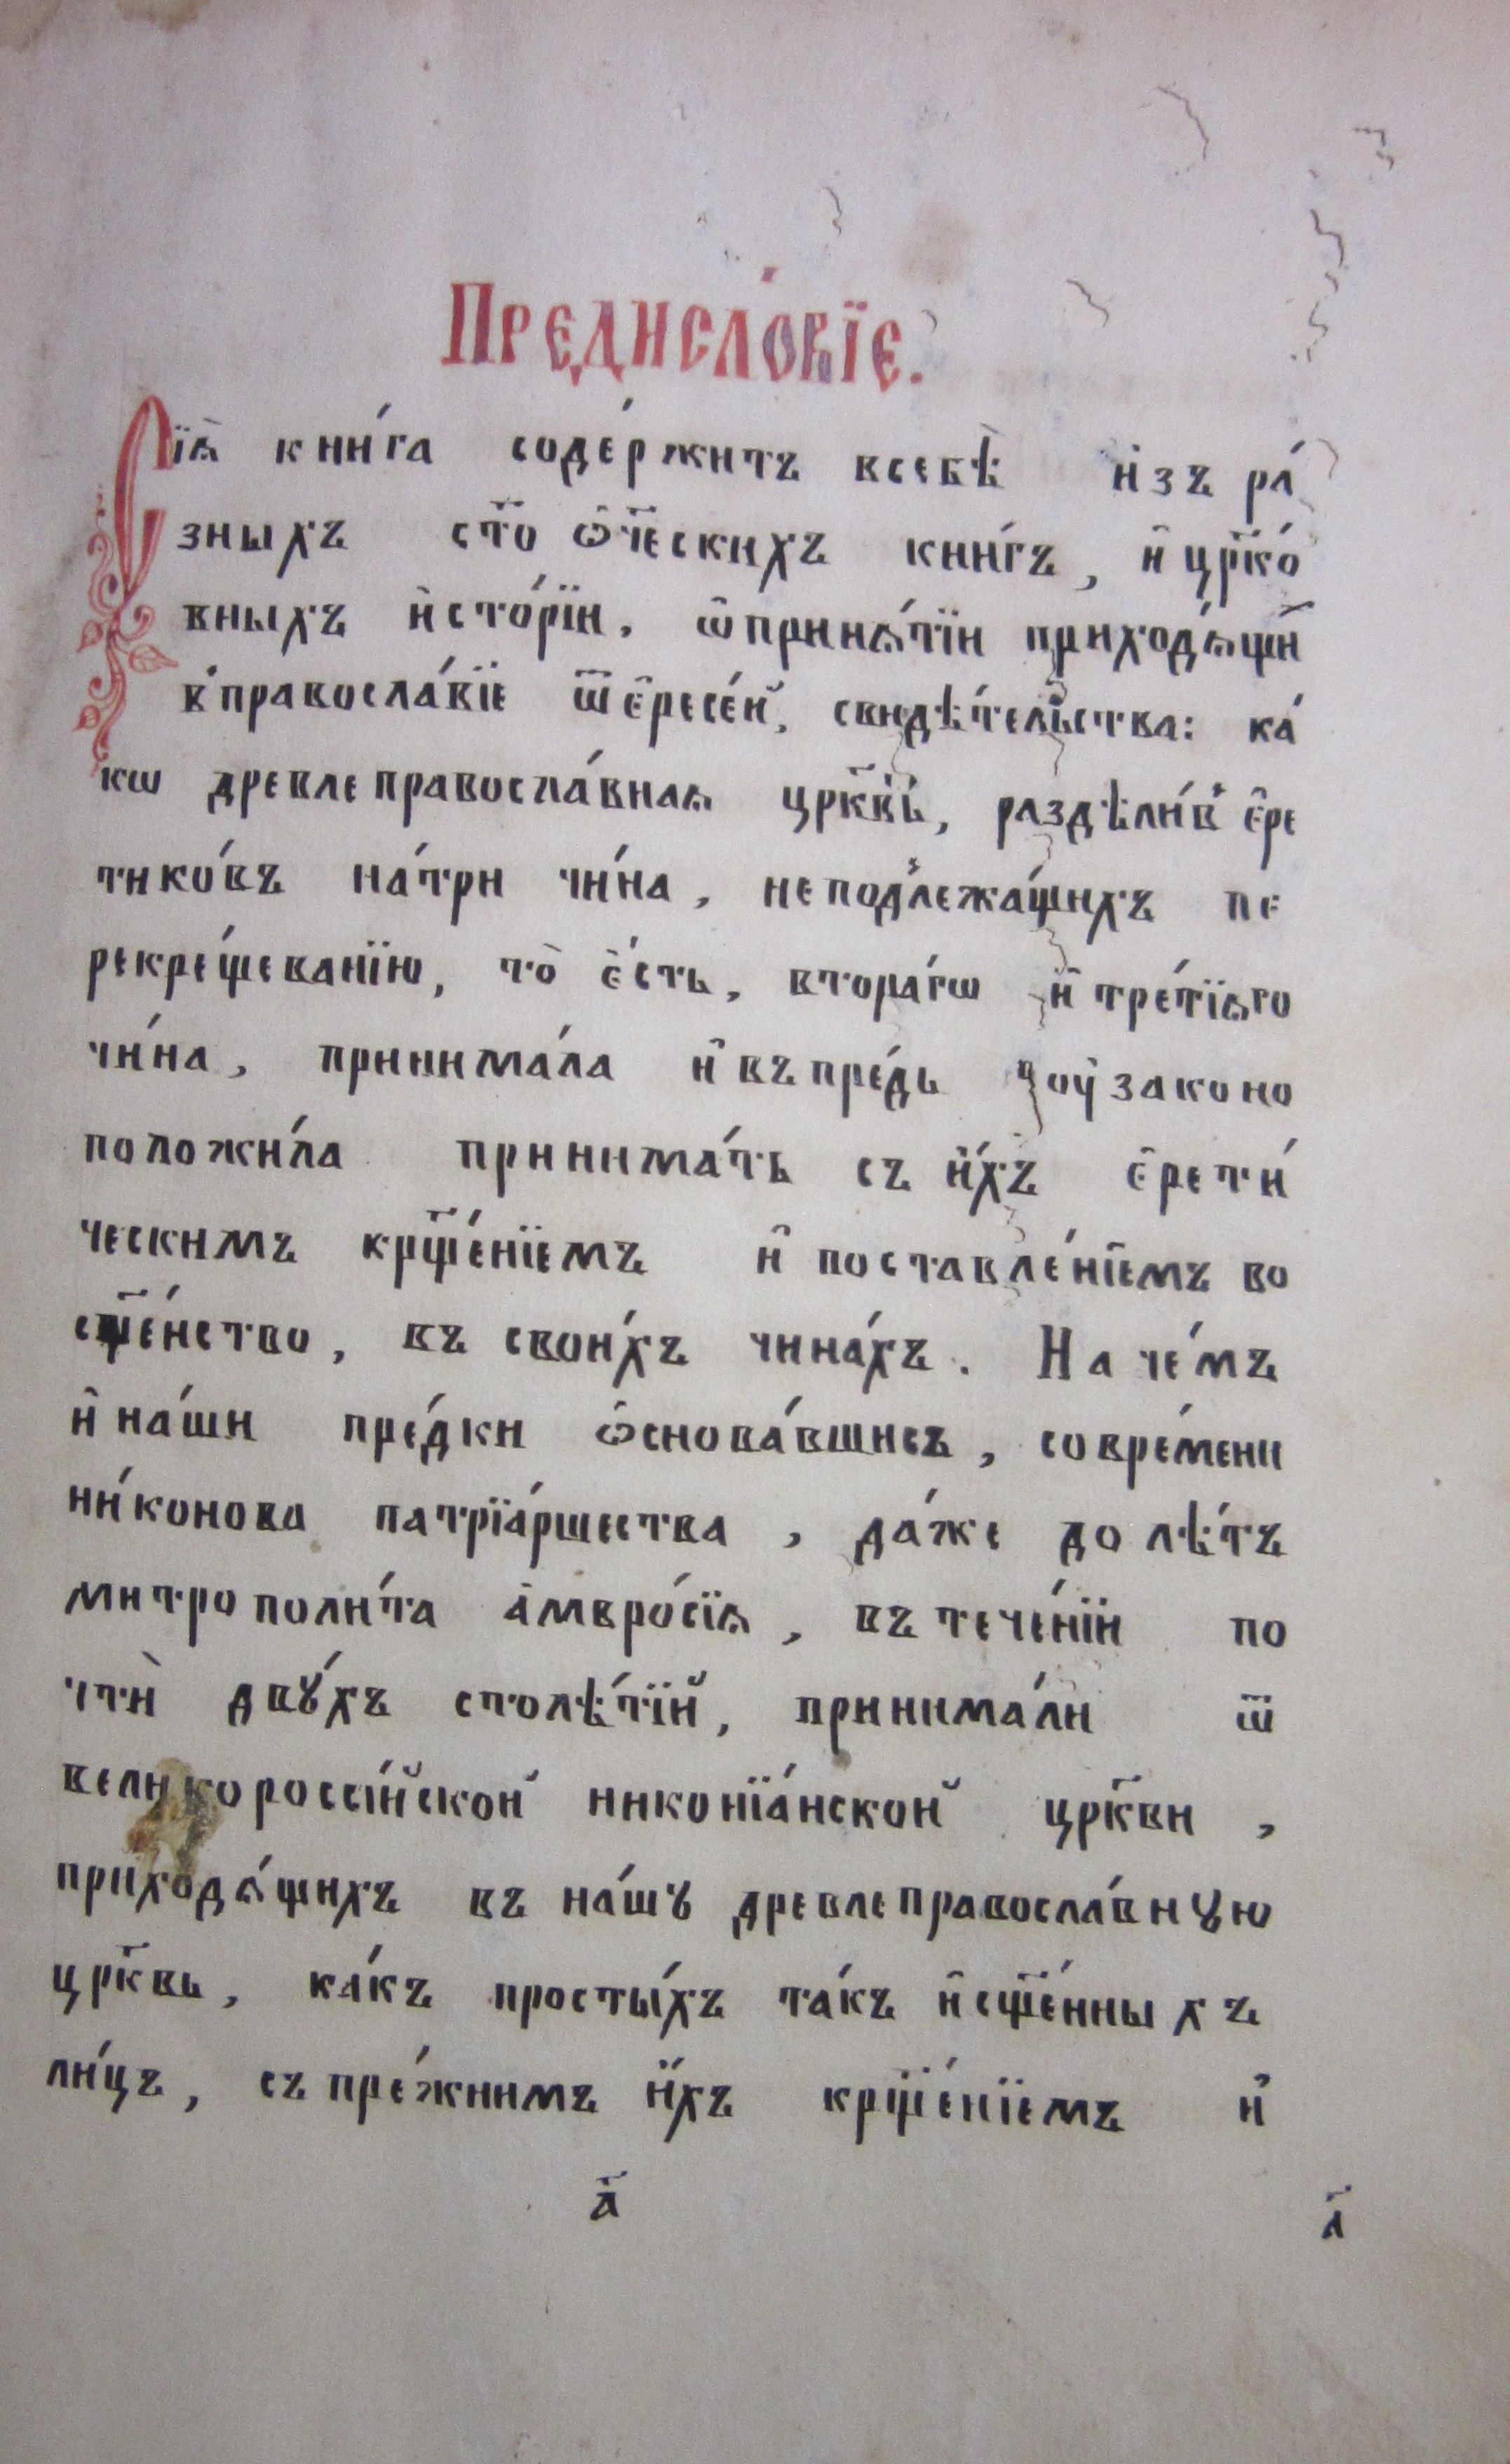 Предисло́вїе.
Сїѧ̀ кни́га соде́ржитъ всебѣ̀ и҆зъ ра́
зныхъ ст҃о ѻ҆ч҃ескихъ кни́гъ, и҆ цр҃ко́
вныхъ и҆сто́рїи. ѡ҆приня́тїи приходѧ́щи҃
к̾правосла́вїе ѿ є҆ресе́й, свидѣ́тельства: ка́
кѡ древлеправосла́внаѧ цр҃ковь, раздѣли́в̾ є҆ре
тико́въ на́три чи́на, неподлежа́щихъ пе
рекре́щеванїю, то̀ є҆́сть, втора́гѡ и҆ тре́тїѧго
чи́на, принима́ла и҆ въпре́дь оу҆законо
положи́ла принима́ть съ и҆́хъ є҆рети́
ческимъ крщ҃е́нїемъ и҆ поставле́нїемъ во
сщ҃е́нство, въ свои́хъ чина́хъ. На че́мъ
и҆ на́ши пре́дки ѡ҆снова́вшись, совре́мени
ни́конова патрїа́ршества, да́же до лѣ́тъ
митрополи́та а҆мвро́сїѧ, въ тече́нїи по
чтѝ двꙋ́хъ столѣ́тїй, принима́ли ѿ
великороссі́йской никонїа́нской цр҃кви,
приходѧ́щихъ въ на́шꙋ древлеправосла́внꙋю
цр҃квь, ка́къ просты́хъ та́къ и҆сщ҃е́нныхъ
ли́цъ, съ пре́жнимъ и҆́хъ крщ҃е́нїемъ и҆
а҃ а҃